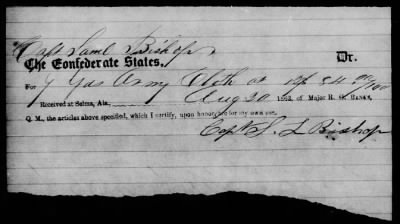 Capt Saml Bishop
The Confederate States, Dr.
For 7 Yds Army Cloth at 12/ $ 84 00/100
Aug 20
Received at Selma, Ala., 1863, of Major R. G. BANKS,
Q. M., the articles above specified, which I certify, upon honor, are for my own use.
Capt S. L Bishop